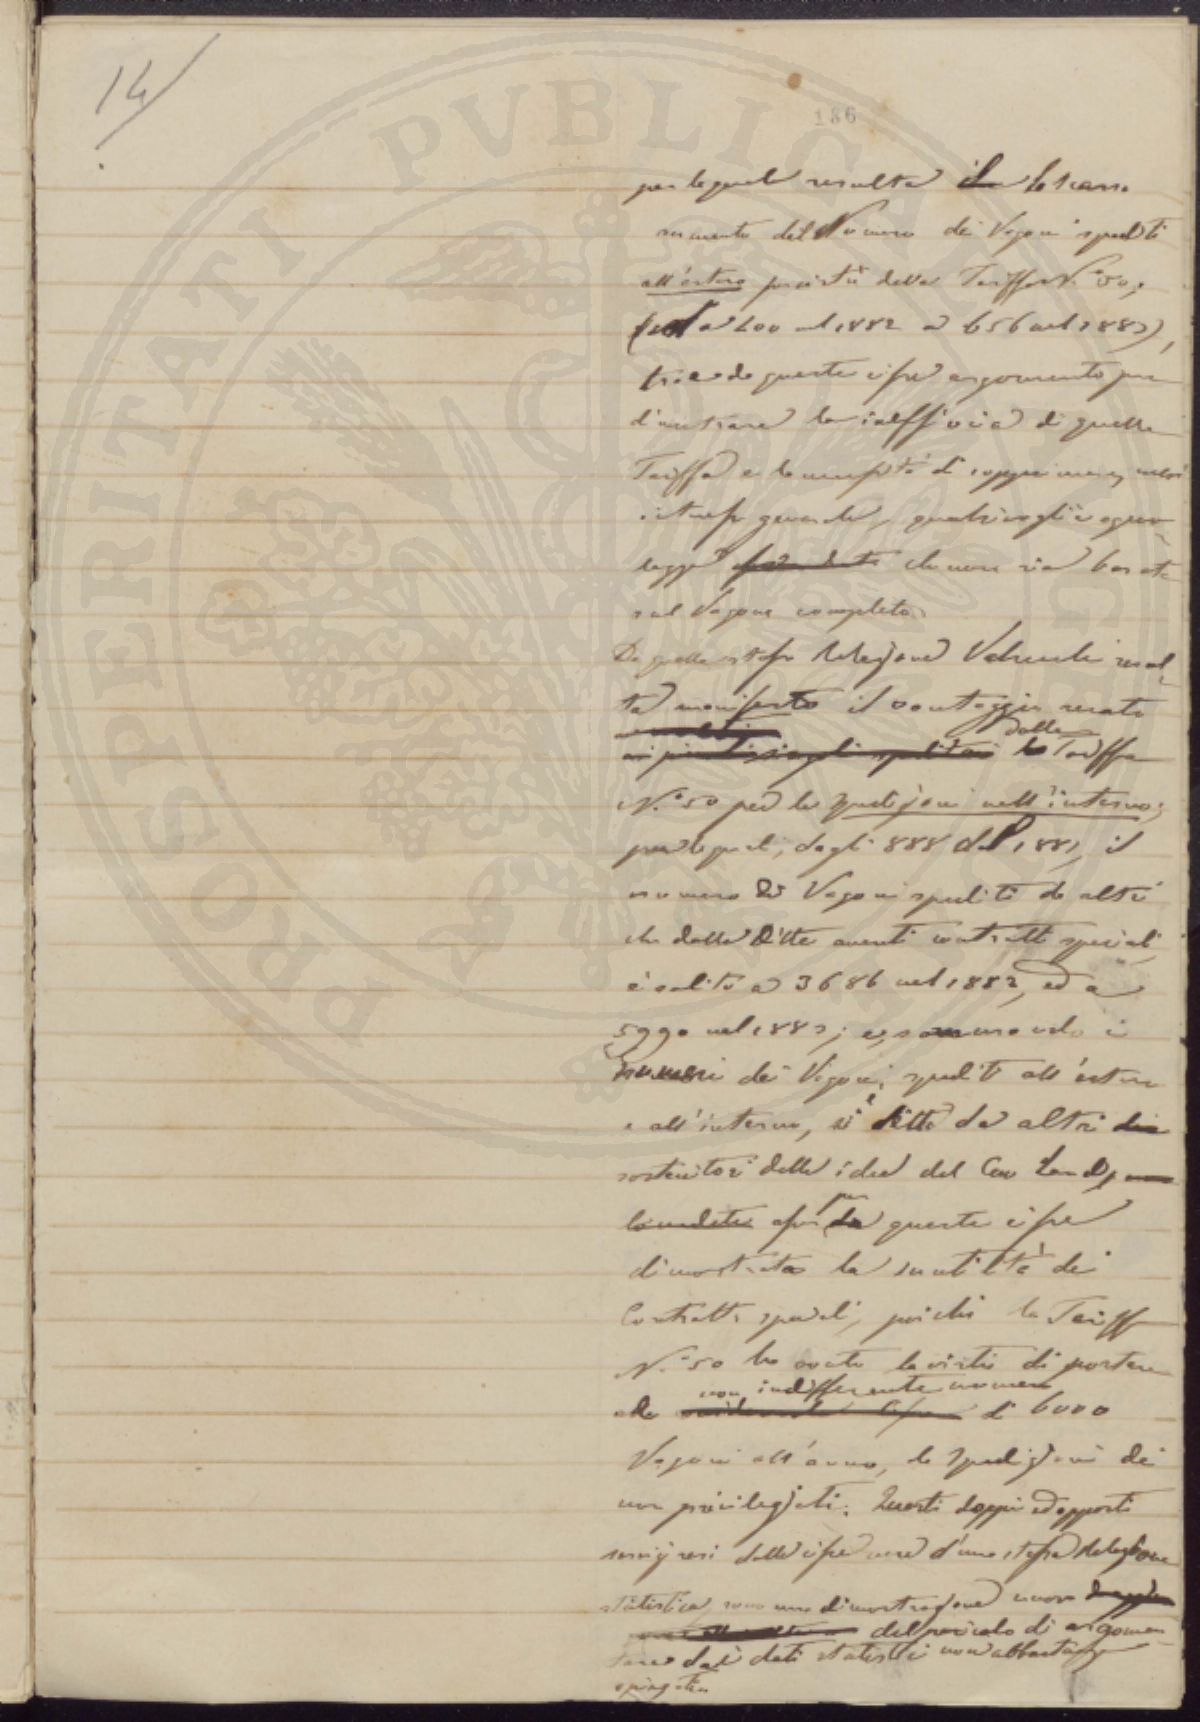 14
186
per le quali resulta il lo scarso
aumento del Numero dei Vagoni spediti
all'estero in virtù della Tariffa N.° 50,
(da 400 nel 1882 a 656 nel 1883),
trae da queste cifre argomento per
dimostrare la inefficacia di quella
Tariffa e la necessità di sopprimere,
generale, qualsivoglia
legge che non sia basata
sul Vagone completo.
Da quella stessa Relazione Valsecchi resul-
ta manifesto il vantaggio recato
dalla Tariffa
N.° 50 per le spedizioni nell'interno;
per le quali, dagli 888 del 1881, il
numero di Vagoni spediti da altri
che dalle Ditte aventi contratti speciali,
è salito a 3686 nel 1882, ed a
5990 nel 1883; e, sommando i
numeri dei Vagoni spediti all'estero
e all'interno, si è detto da altri
sostenitori delle idee del Cav.
per queste cifre
dimostrata la inutilità dei
Contratti speciali, poichè la Tariffa
N.° 50 ha avuto la virtù di portare
non indifferente numero
alla di 6000
Vagoni all'anno, le spedizioni dei
non privilegiati. Questi doppi ed opposti
servigi resi dalle cifre d'una stessa Relazione
statistica, sono una dimostrazione nuova
del pericolo di argomen-
tare dai dati statistici non abbastanza
spiegati.
PROSPERITATI PVBLICAE